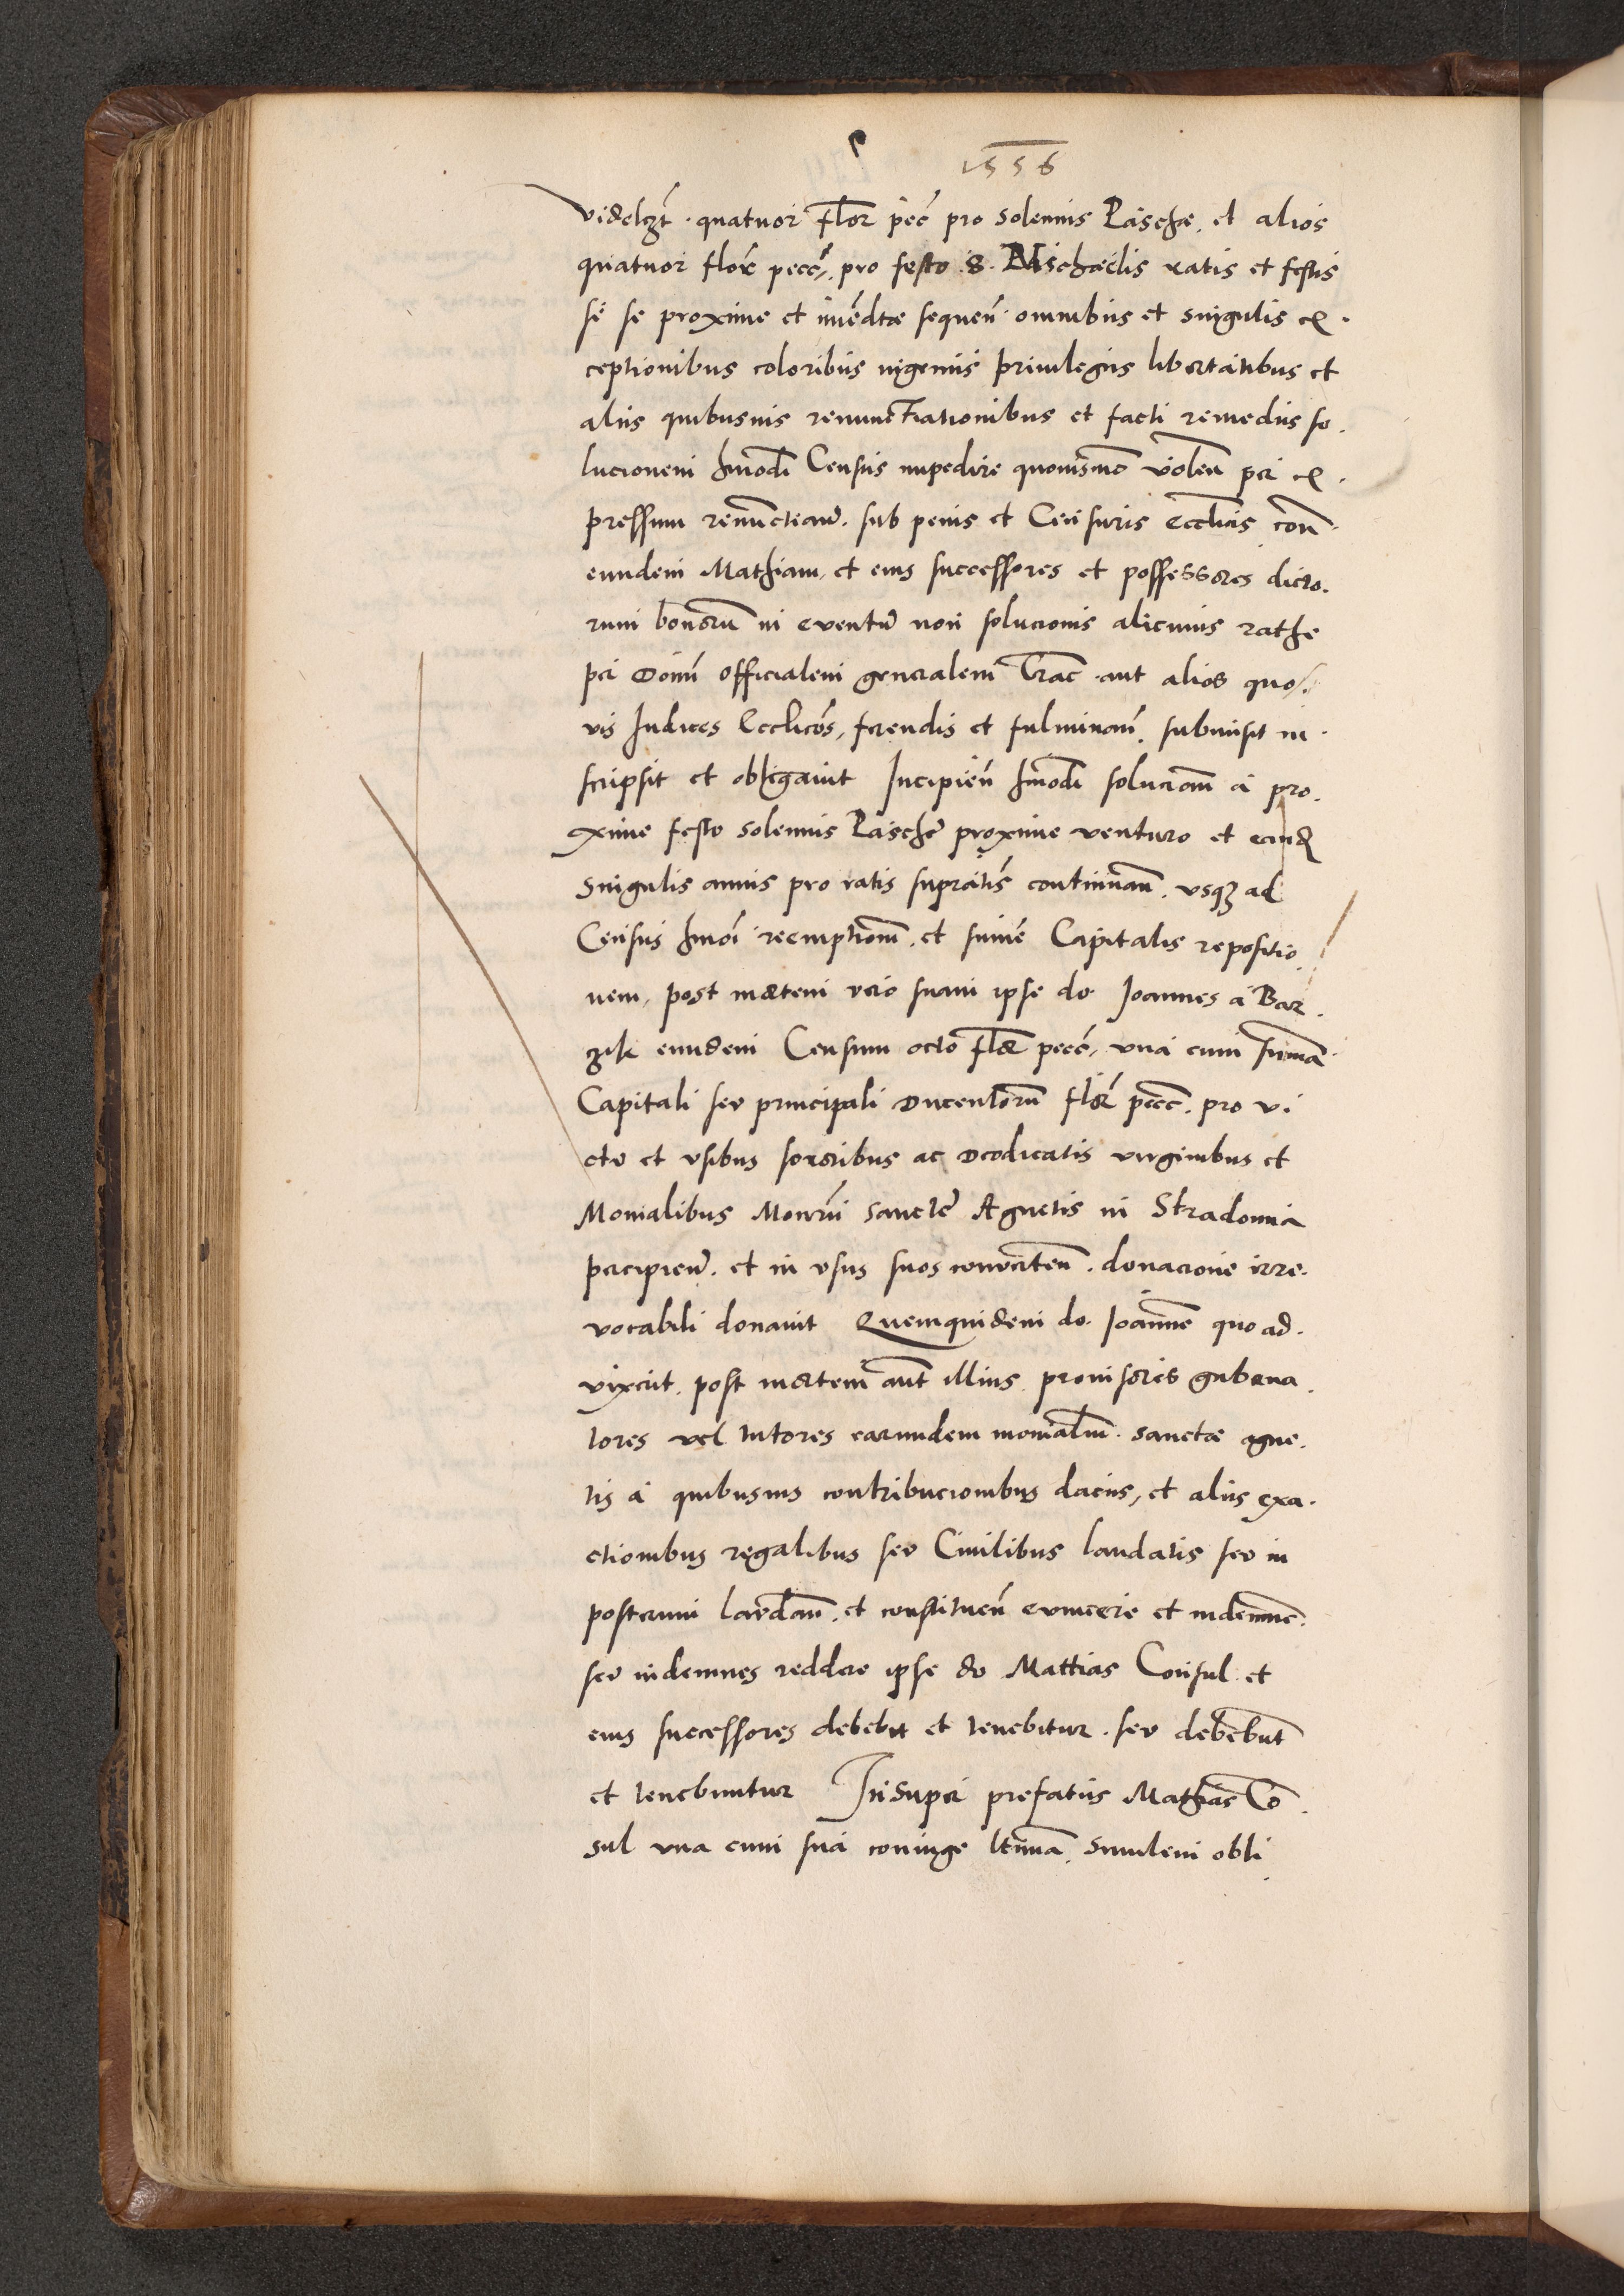 1556
videlȝt · quatuor flor pec̃ pro solennis Paschæ, et alios
quatuor flor̃ pecc̃, pro festo .S. Michaelis ratis et festis
sē se proxime et im̃edtæ sequeñ omnibus et singulis ex-
ceptionibus coloribus ingeniis privilegiis libertatibus et
aliis quibusuis renunctiationibus et facti remediis so-
lucionem hmodi Census impedire quouismo volen̄ per ex-
pressum renunctiañ. sub penis et Censuris eccl̃icis coñ
eundem Mathiam, et eius successores et possessores dicto-
rum bonorũ in eventũ non solucionis alicuius rathe
per Domñ officialem generalem Crac̃ aut alios quo-
vis Iudices Eccl̃icos, ferendis et fulminañ. submisit in-
scripsit et obligavit Incipieñ hmodi soluciõm a pro-
xime festo solennis Pasche proxime venturo et eand̃
singulis annis pro ratis supratis continuañ. vsqȝ ad
Census hmoi reemptioñm, et sum̃e Capitalis repositio-
nem, post mortem vero suam ipse do Ioannes a Bar-
eundem Censum octo flor pecc̃, vna cum sum̃a
Capitali seu principali Ducentorũ flor̃ pecc̃. pro vi
ctu et vsibus sororibus ac Dedicatis virginibus et
Monialibus Monrii sancte Agnetis in Stradomia
percipieñ. et in vsus suos converteñ. donacione irre-
vocabili donavit Quemquidem do. Ioannẽ quo ad-
vixerit. post mortem aut̃ illius provisores guberna-
tores vel tutores earundem monialiũ sanctæ agne-
tis a quibusuis contribucionibus daciis, et aliis exa-
ctionibus regalibus seu Civilibus laudatis seu in
posterum laudañ. et constitueñ evincere et indemnẽ.
seu indemnes reddere ipse do Mattias Consul et
eius successores debebit et tenebitur seu debebũt
et tenebuntur Insuper prefatus Mathias Co
sul vna cum sua coniuge obli